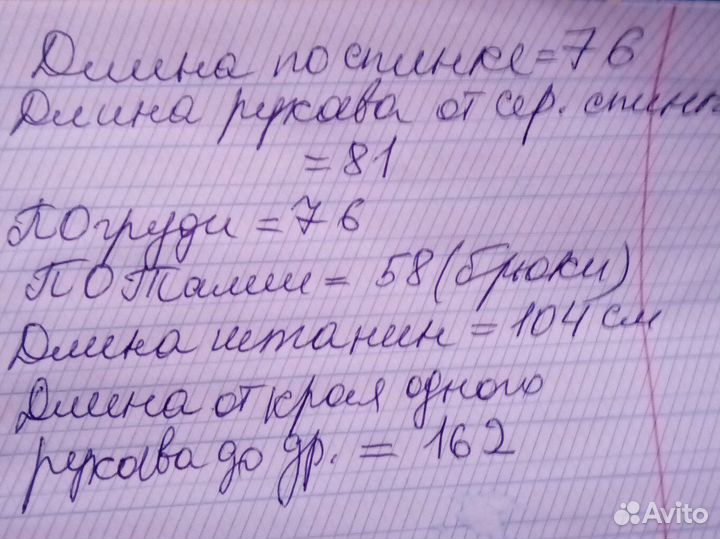 Длина по спинке = 76
Длина рукава от сер. спинк
= 81
ПОгруди = 76
ПОталии = 58 (брюки)
Длина штанин = 104 см
Длина от края одного
рукава до др. = 162
Avito